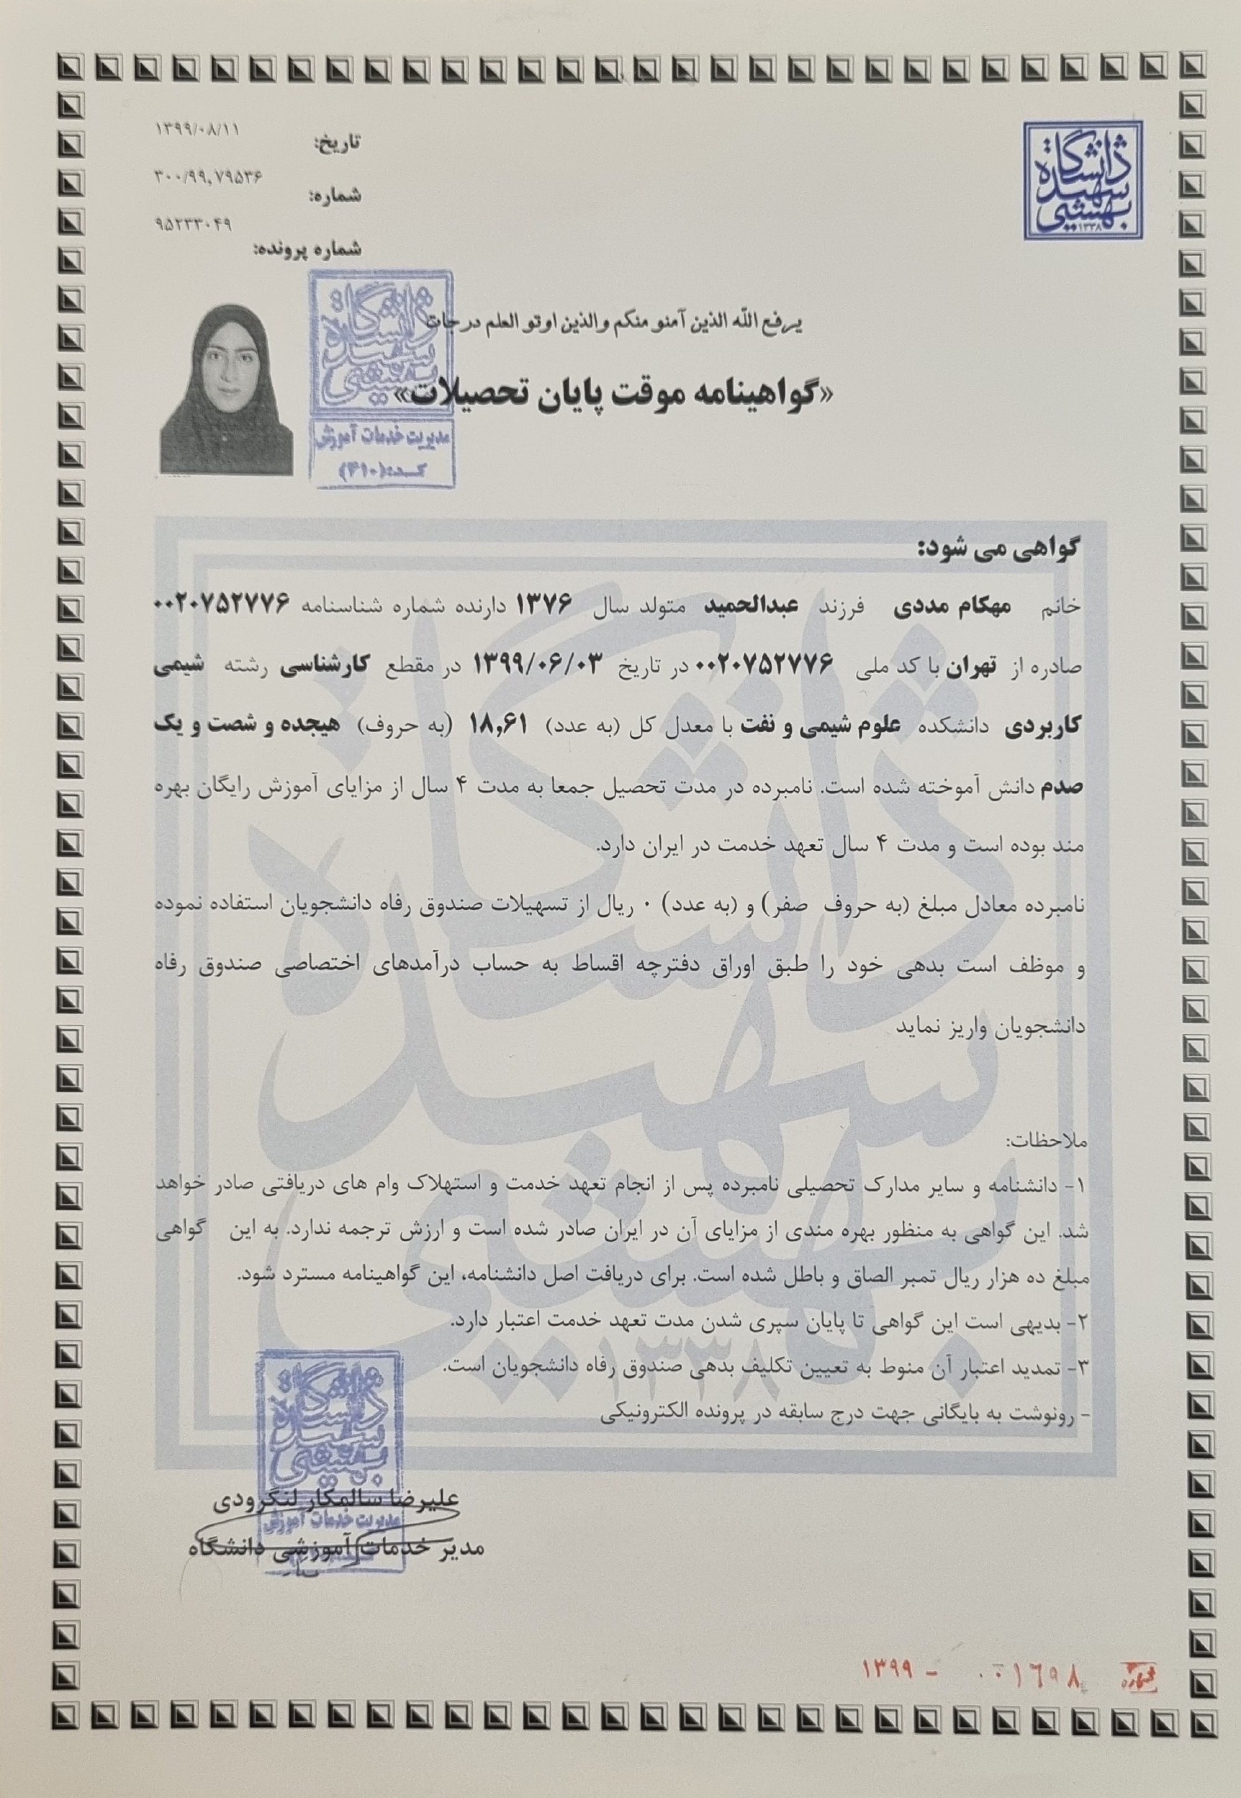 دانشگاه
شهید
بهشتی
۱۳۳۸
تاریخ: ۱۳۹۹/۰۸/۱۱
شماره: ۳۰۰/۹۹,۷۹۵۳۶
شماره پرونده: ۹۵۲۳۳۰۴۹
یرفع الله الذین آمنو منکم والذین اوتو العلم درجات
«گواهینامه موقت پایان تحصیلات»
دانشگاه
شهید
بهشتی
مدیریت خدمات آموزش
کد:(۴۱۰)
گواهی می شود:
خانم مهکام مددی فرزند عبدالحمید متولد سال ۱۳۷۶ دارنده شماره شناسنامه ۰۰۲۰۷۵۲۷۷۶
صادره از تهران با کد ملی ۰۰۲۰۷۵۲۷۷۶ در تاریخ ۱۳۹۹/۰۶/۰۳ در مقطع کارشناسی رشته شیمی
کاربردی دانشکده علوم شیمی و نفت با معدل کل (به عدد) ۱۸,۶۱ (به حروف) هیجده و شصت و یک
صدم دانش آموخته شده است. نامبرده در مدت تحصیل جمعا به مدت ۴ سال از مزایای آموزش رایگان بهره
مند بوده است و مدت ۴ سال تعهد خدمت در ایران دارد.
نامبرده معادل مبلغ (به حروف صفر) و (به عدد) ۰ ریال از تسهیلات صندوق رفاه دانشجویان استفاده نموده
و موظف است بدهی خود را طبق اوراق دفترچه اقساط به حساب درآمدهای اختصاصی صندوق رفاه
دانشجویان واریز نماید
ملاحظات:
۱- دانشنامه و سایر مدارک تحصیلی نامبرده پس از انجام تعهد خدمت و استهلاک وام های دریافتی صادر خواهد
شد. این گواهی به منظور بهره مندی از مزایای آن در ایران صادر شده است و ارزش ترجمه ندارد. به این گواهی
مبلغ ده هزار ریال تمبر الصاق و باطل شده است. برای دریافت اصل دانشنامه، این گواهینامه مسترد شود.
۲- بدیهی است این گواهی تا پایان سپری شدن مدت تعهد خدمت اعتبار دارد.
۳- تمدید اعتبار آن منوط به تعیین تکلیف بدهی صندوق رفاه دانشجویان است.
- رونوشت به بایگانی جهت درج سابقه در پرونده الکترونیکی
دانشگاه
شهید
بهشتی
علیرضا سالمکار لنگرودی
مدیریت خدمات آموزش
مدیر خدمات آموزشی دانشگاه
شماره ۰۰۱۶۹۸ - ۱۳۹۹